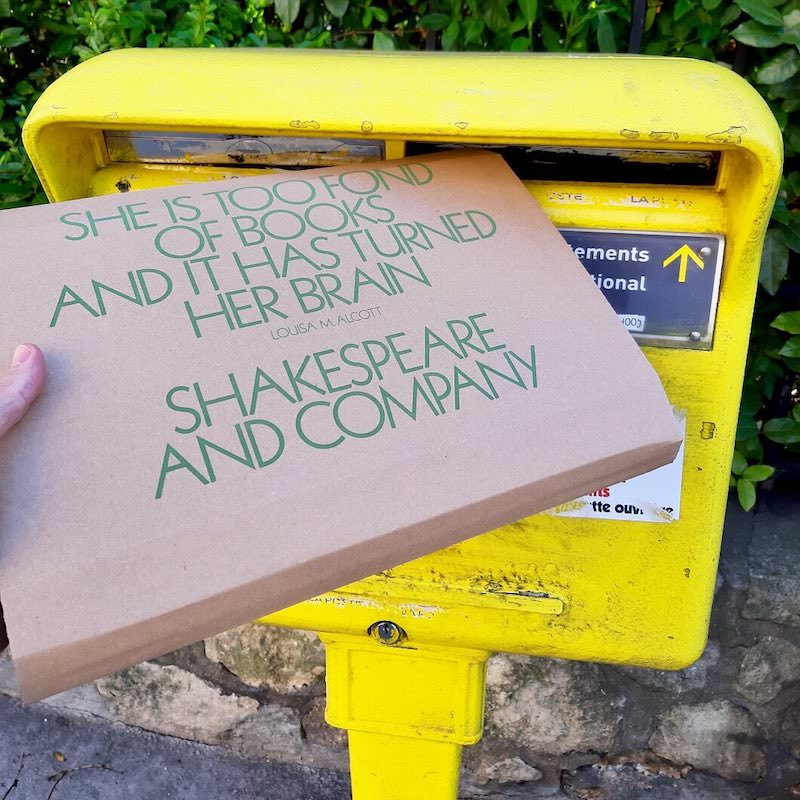 SHE IS TOO FOND
OF BOOKS
AND IT HAS TURNED
HER BRAIN
LOUISA M. ALCOTT
SHAKESPEARE
AND COMPANY
LA P
ements
ional
tte